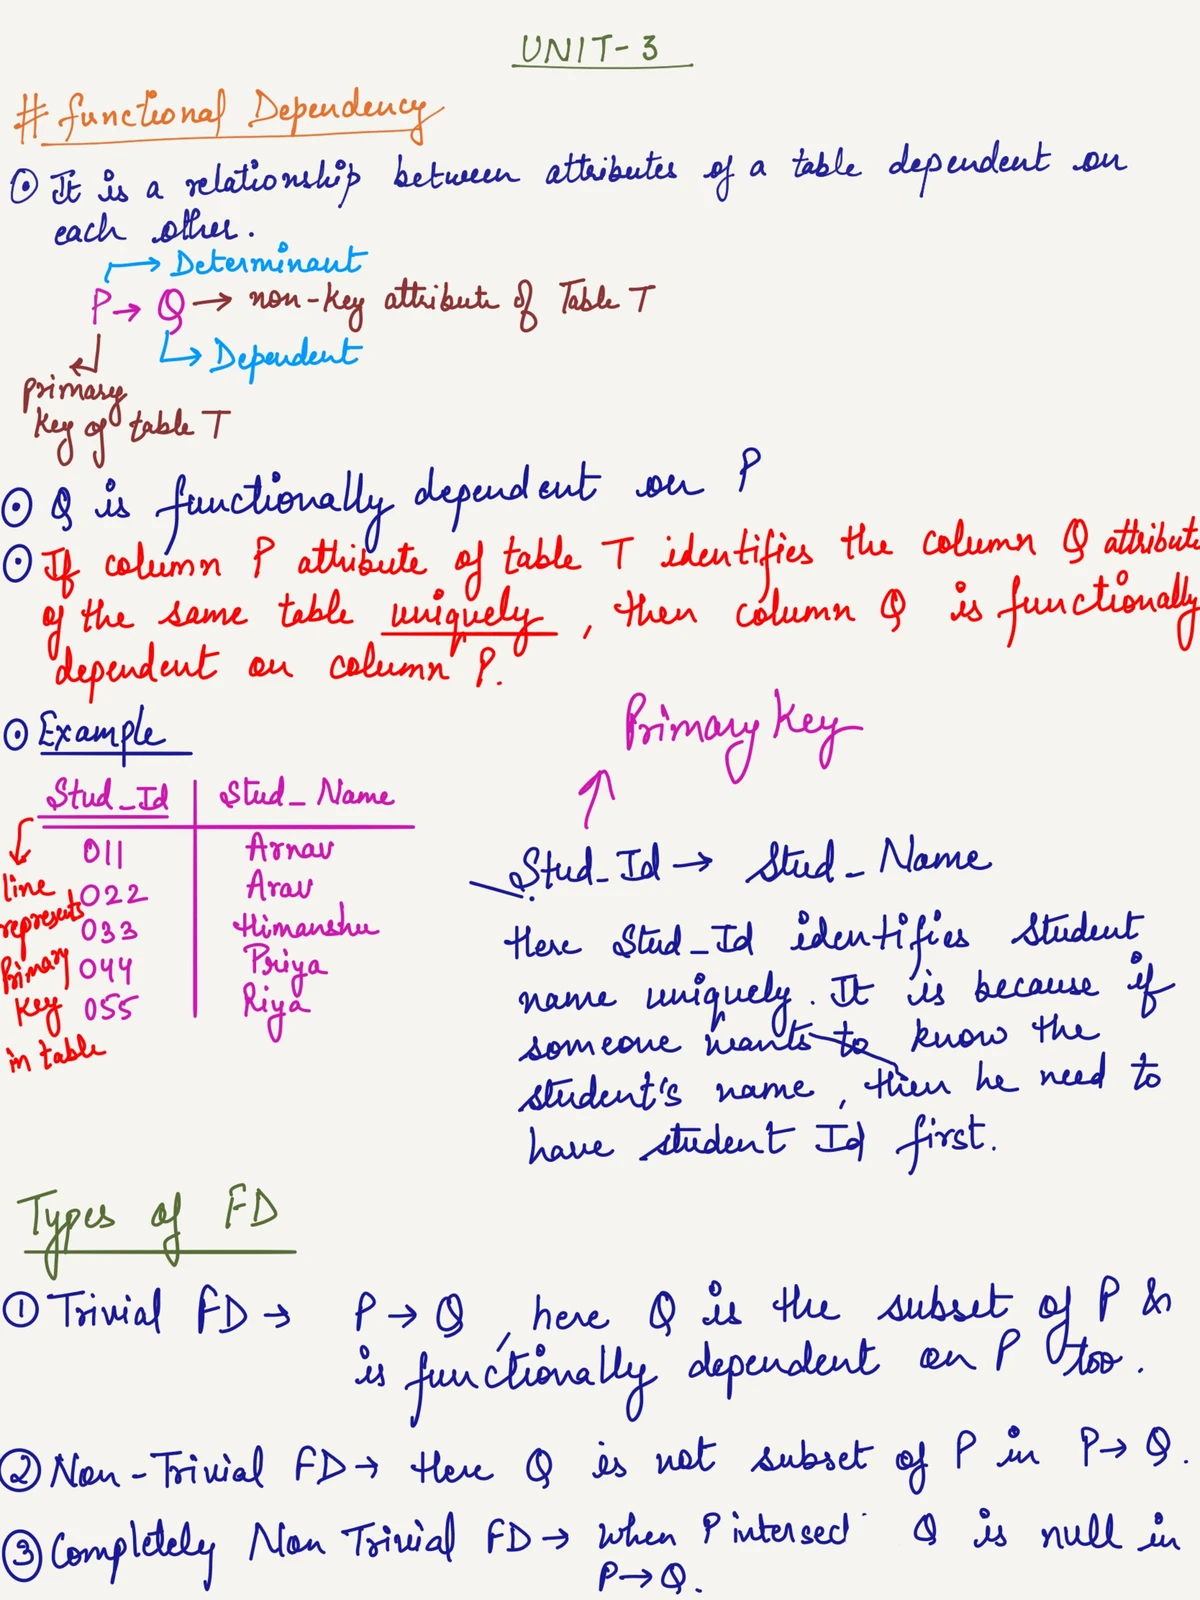 UNIT-3
# functional Dependency
⊙ It is a relationship between attributes of a table dependent on
each other.
→ Determinant
P → Q → non-key attribute of Table T
→ Dependent
primary
key of table T
⊙ Q is functionally dependent on P
⊙ If column P attribute of table T identifies the column Q attribute
of the same table uniquely, then column Q is functionally
dependent on column P.
⊙ Example
Primary Key
Stud_Id Stud_Name
011 Arnav
022 Arav
033 Himanshu
044 Priya
055 Riya
line
represents
Primary
key
in table
Stud_Id → Stud_Name
Here Stud_Id identifies student
name uniquely. It is because if
someone wants to know the
student's name, then he need to
have student Id first.
Types of FD
① Trivial FD → P → Q, here Q is the subset of P &
is functionally dependent on P too.
② Non-Trivial FD → Here Q is not subset of P in P → Q.
③ Completely Non Trivial FD → when P intersect Q is null in
P → Q.